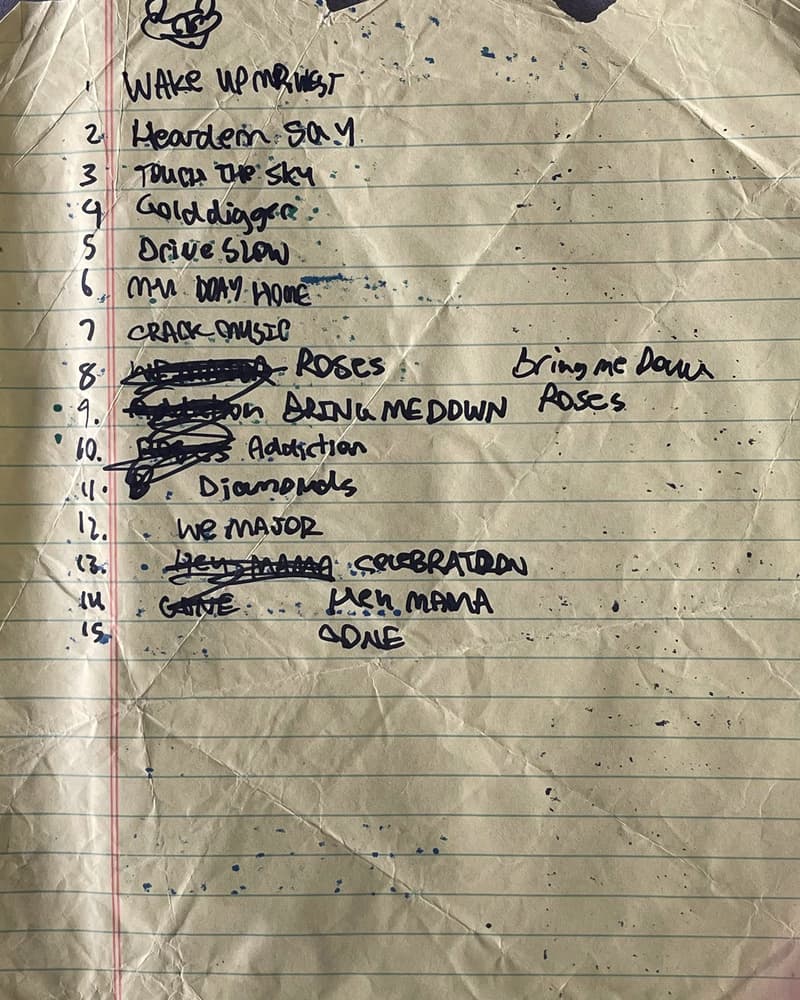 1 WAKE UP MR WEST
2 Heardem SAY
3 TOUCH THE SKY
4 Golddigger
5 Drive SLOW
6 MY WAY HOME
7 CRACK MUSIC
8. ROSES Bring me Down
9. BRING ME DOWN Roses
10. Addiction
11. Diamonds
12. We MAJOR
13. Hey MAMA CELEBRATION
14 GONE Hey MAMA
15 GONE